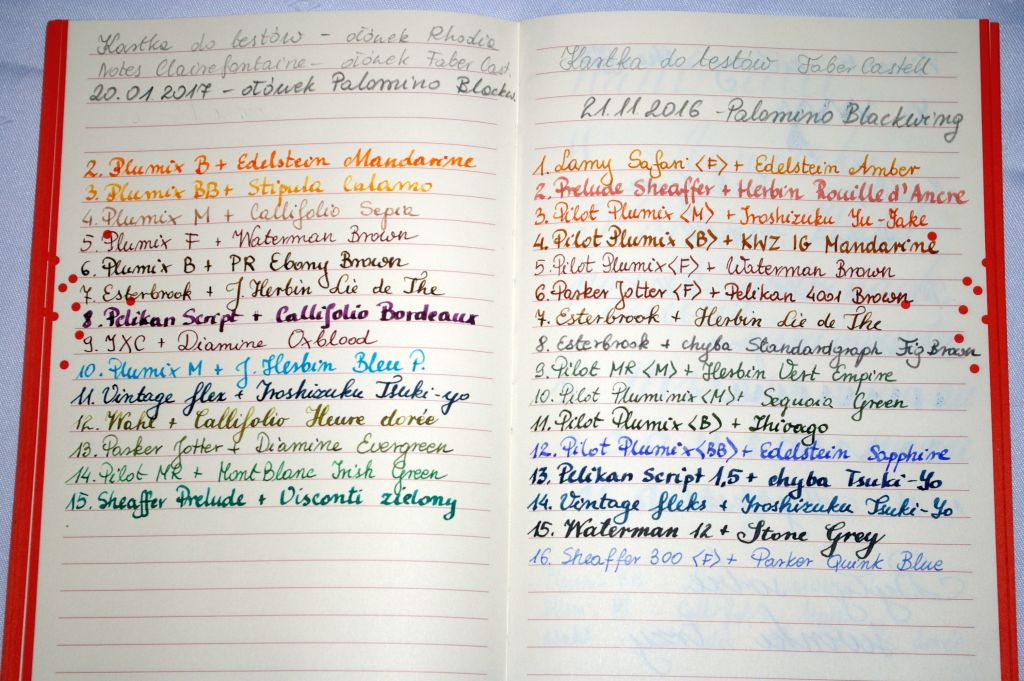 Kartka do testów - ołówek Rhodia
Notes Clairefontaine - ołówek Faber Cast.
20.01 2017 - ołówek Palomino Blackw.
2. Plumix B + Edelstein Mandarine
3. Plumix BB + Stipula Calamo
4. Plumix M + Callifolio Sepia
5. Plumix F + Waterman Brown
6. Plumix B + PR Ebony Brown
7. Esterbrook + J. Herbin Lie de The
8. Pelikan Script + Callifolio Bordeaux
9. JXC + Diamine Oxblood
10. Plumix M + J. Herbin Bleu P.
11. Vintage flex + Iroshizuku Tsuki-yo
12. Wahl + Callifolio Heure dorée
13. Parker Jotter + Diamine Evergreen
14. Pilot MR + Mont Blanc Irish Green
15. Sheaffer Prelude + Visconti zielony
Kartka do testów Faber Castell
21.11 2016 - Palomino Blackwing
1. Lamy Safari <F> + Edelstein Amber
2. Prelude Sheaffer + Herbin Rouille d'Ancre
3. Pilot Plumix <M> + Iroshizuku Yu-Yake
4. Pilot Plumix <B> + KWZ IG Mandarine
5. Pilot Plumix <F> + Waterman Brown
6. Parker Jotter <F> + Pelikan 4001 Brown
7. Esterbrook + Herbin Lie de The
8. Esterbrook + chyba Standardgraph Fig Brown
9. Pilot MR <M> + Herbin Vert Empire
10. Pilot Pluminix <M> + Sequoia Green
11. Pilot Plumix <B> + Zhivago
12. Pilot Plumix <BB> + Edelstein Sapphire
13. Pelikan Script 1,5 + chyba Tsuki-Yo
14. Vintage fleks + Iroshizuku Tsuki-Yo
15. Waterman 12 + Stone Grey
16. Sheaffer 300 <F> + Parker Quink Blue